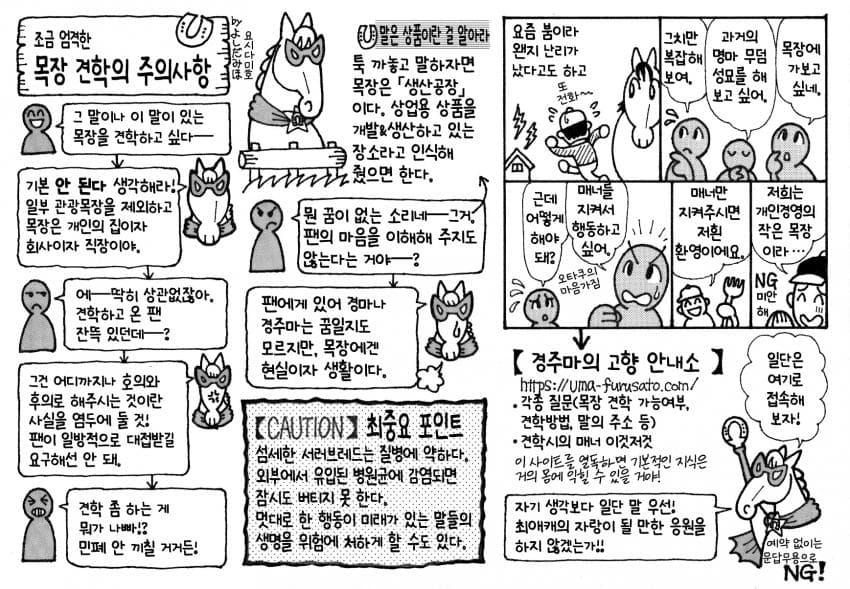 조금 엄격한
목장 견학의 주의사항
요시다미호
by よしだみほ
그 말이나 이 말이 있는
목장을 견학하고 싶다──
기본 안 된다 생각해라!
일부 관광목장을 제외하고
목장은 개인의 집이자
회사이자 직장이야.
에─딱히 상관없잖아.
견학하고 온 팬
잔뜩 있던데──?
그건 어디까지나 호의와
후의로 해주시는 것이란
사실을 염두에 둘 것!
팬이 일방적으로 대접받길
요구해선 안 돼.
견학 좀 하는 게
뭐가 나빠!?
민폐 안 끼칠 거거든!
말은 상품이란 걸 알아라
툭 까놓고 말하자면
목장은 「생산공장」
이다. 상업용 상품을
개발&생산하고 있는
장소라고 인식해
줬으면 한다.
뭔 꿈이 없는 소리네──그거.
팬의 마음을 이해해 주지도
않는다는 거야──?
팬에게 있어 경마나
경주마는 꿈일지도
모르지만, 목장에겐
현실이자 생활이다.
【CAUTION】 최중요 포인트
섬세한 서러브레드는 질병에 약하다.
외부에서 유입된 병원균에 감염되면
잠시도 버티지 못 한다.
멋대로 한 행동이 미래가 있는 말들의
생명을 위험에 처하게 할 수도 있다.
목장에
가보고
싶네.
과거의
명마 무덤
성묘를 해
보고 싶어.
그치만
복잡해
보여.
요즘 붐이라
왠지 난리가
났다고도 하고
또
전화~~
저희는
개인경영의
작은 목장
이라…
NG
미안
해
매너만
지켜주시면
저흰
환영이에요.
매너를
지켜서
행동하고
싶어.
오타쿠의
마음가짐
근데
어떻게
해야
돼?
【 경주마의 고향 안내소 】
https://uma-furusato.com/
• 각종 질문(목장 견학 가능여부,
견학방법, 말의 주소 등)
• 견학시의 매너 이것저것
이 사이트를 열독하면 기본적인 지식은
거의 몸에 익힐 수 있을 거야!
일단은
여기로
접속해
보자!
자기 생각보다 일단 말 우선!
최애캐의 자랑이 될 만한 응원을
하지 않겠는가!!
예약 없이는
문답무용으로
NG!